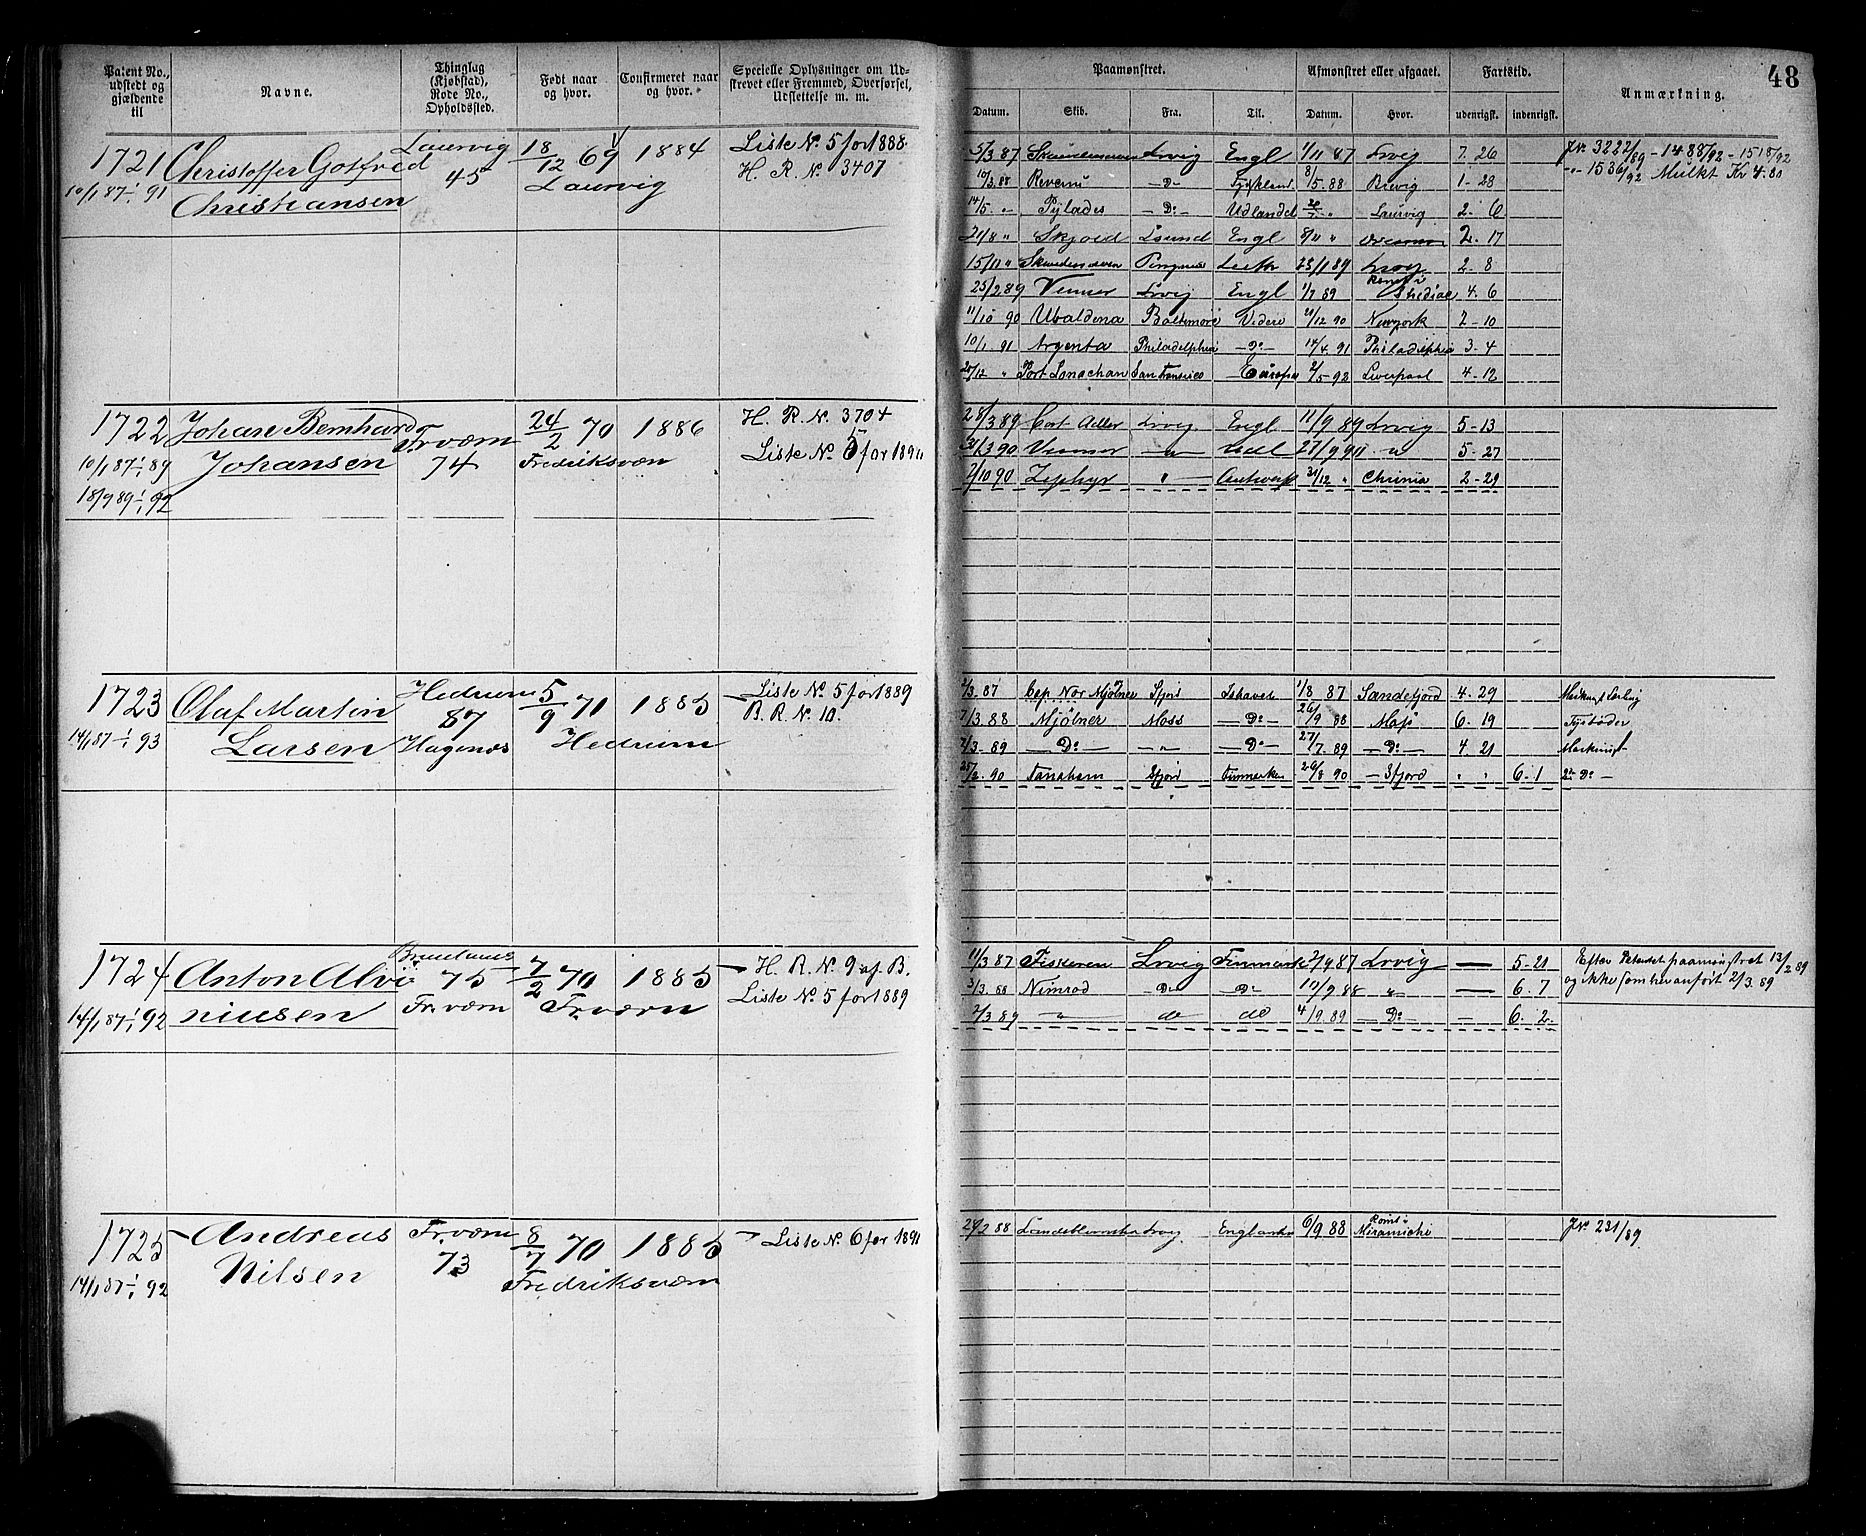 48
Patent No., udstedt og gjældende til
Navne.
Thinglag (Kjøbstad), Rode No., Opholdssted.
Født naar og hvor.
Confirmeret naar og hvor.
Specielle Oplysninger om Udstrevet eller Fremmed, Overførsel, Udslettelse m. m.
Paamønstret.
Afmønstret eller afgaaet.
Fartstid.
Anmærkning.
Datum. Skib. Fra. Til. Datum. Hvor. udenrigsk. indenrigsk.
1721 Christoffer Gotfred Laurvig 18/12 69 1884 Liste No. 5 for 1888
10/1 87 1/1 91 Christiansen 45 Laurvig H. R. No. 3407
5/3 87 Lrvig Engl 1/11 87 Lrvig 7. 26 JNo. 3222/89 - 1488/92 - 1518/92
10/3 88 Revenu - Do - Tyskland 8/5. 88 Brevig 1 - 28 -"- 1536/92 Mulkt Kr 4.80
14/5. " Pylades - Do - Udlandet " Laurvig 2. 6
21/8 " Skjold Lsund Engl 8/11 " 2. 17
15/11 " Leith 23/1 89 Lrvig 2. 8
25/2 89 Venner Lrvig Engl 1/7 89 Rømt i Shediac 4. 6
11/10 90 Ubaldena Baltemore Videre 21/12 90 Newyork 2 - 10
10/1. 91 Argenta Philadelphia - Do - 14/4 91 Philadelphia 3. 4
/12 " Port Lonachan San Fransisco Europa 2/5 - 92 Liverpool 4 - 12
1722 Johan Bernhard Fr.værn 24/2 70 1886 H. R. No. 3704
10/1 87 1/1 89 Johansen 74 Fredriksværn Liste No. 5 for 1890
18/9 89 1/1 92
28/3 89 Cort Adler Lrvig Engl 11/9 89 Lrvig 5 - 13
31/3 90 Venner " Udl 27/9 90 " 5 - 27
2/10 90 Zephyr " Antwerp 31/12 " Chrinia 2 - 29
1723 Olaf Martin Hedrum 5/9 71 1885 Liste No. 5 for 1889
14/1 87 1/1 93 Larsen 87 Hagenæs Hedrum B. R. No. 10.
2/3. 87 Cap Nor Mjølner Sfjord Ishavet 1/8 87 Sandefjord 4. 29
7/3. 88 Mjølner Moss - Do - 26/9 88 Moss 6. 19
2/3. 89 - Do - - " - - Do - 27/7. 89 - Do - 4. 21
25/2. 90 Tanahorn Sfjord Finmarken 26/8 90 Sfjord " " 6. 1 2n Do -
1724 Anton Alvi- Brunlanes 75 7/2 70 1885 H. R. No. 9 af B.
14/1 87 1/1 92 niusen Fr.værn Fr.værn Liste No. 5 for 1889
11/3 87 Fiskeren Lrvig Finmark 2/9 87 Lrvig — 5. 21 Efter Patentet paamønstret 13/2 89
3/3. 88 Nimrod - Do - - Do - 10/9 88 " — 6. 7 og ikke som her anført 2/3. 89
2/3 89 " do do 4/9. 89 - Do - — 6. 2.
1725 Andreas Fr.værn 8/7 70 1885 Liste No. 6 for 1891
14/1 87 1/1 92 Nilsen 73 Fredriksværn
24/2 88 Lrvig 6/9. 88 Rømt i Miramichi JNo. 231/89